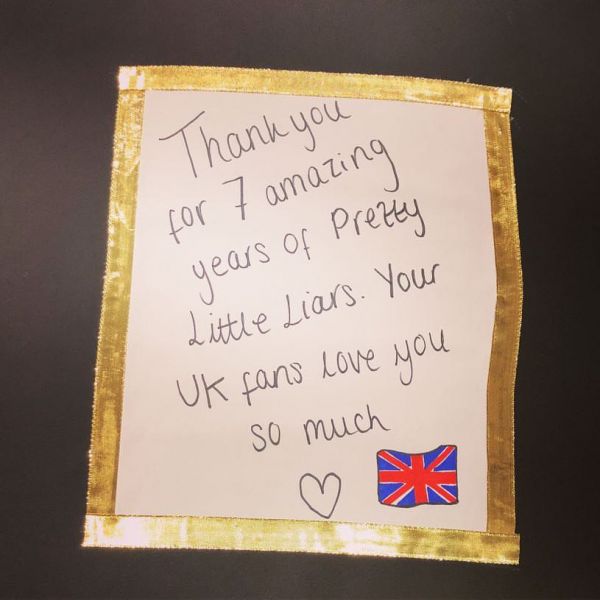 Thank you
for 7 amazing
years of Pretty
Little Liars. Your
UK fans love you
so much